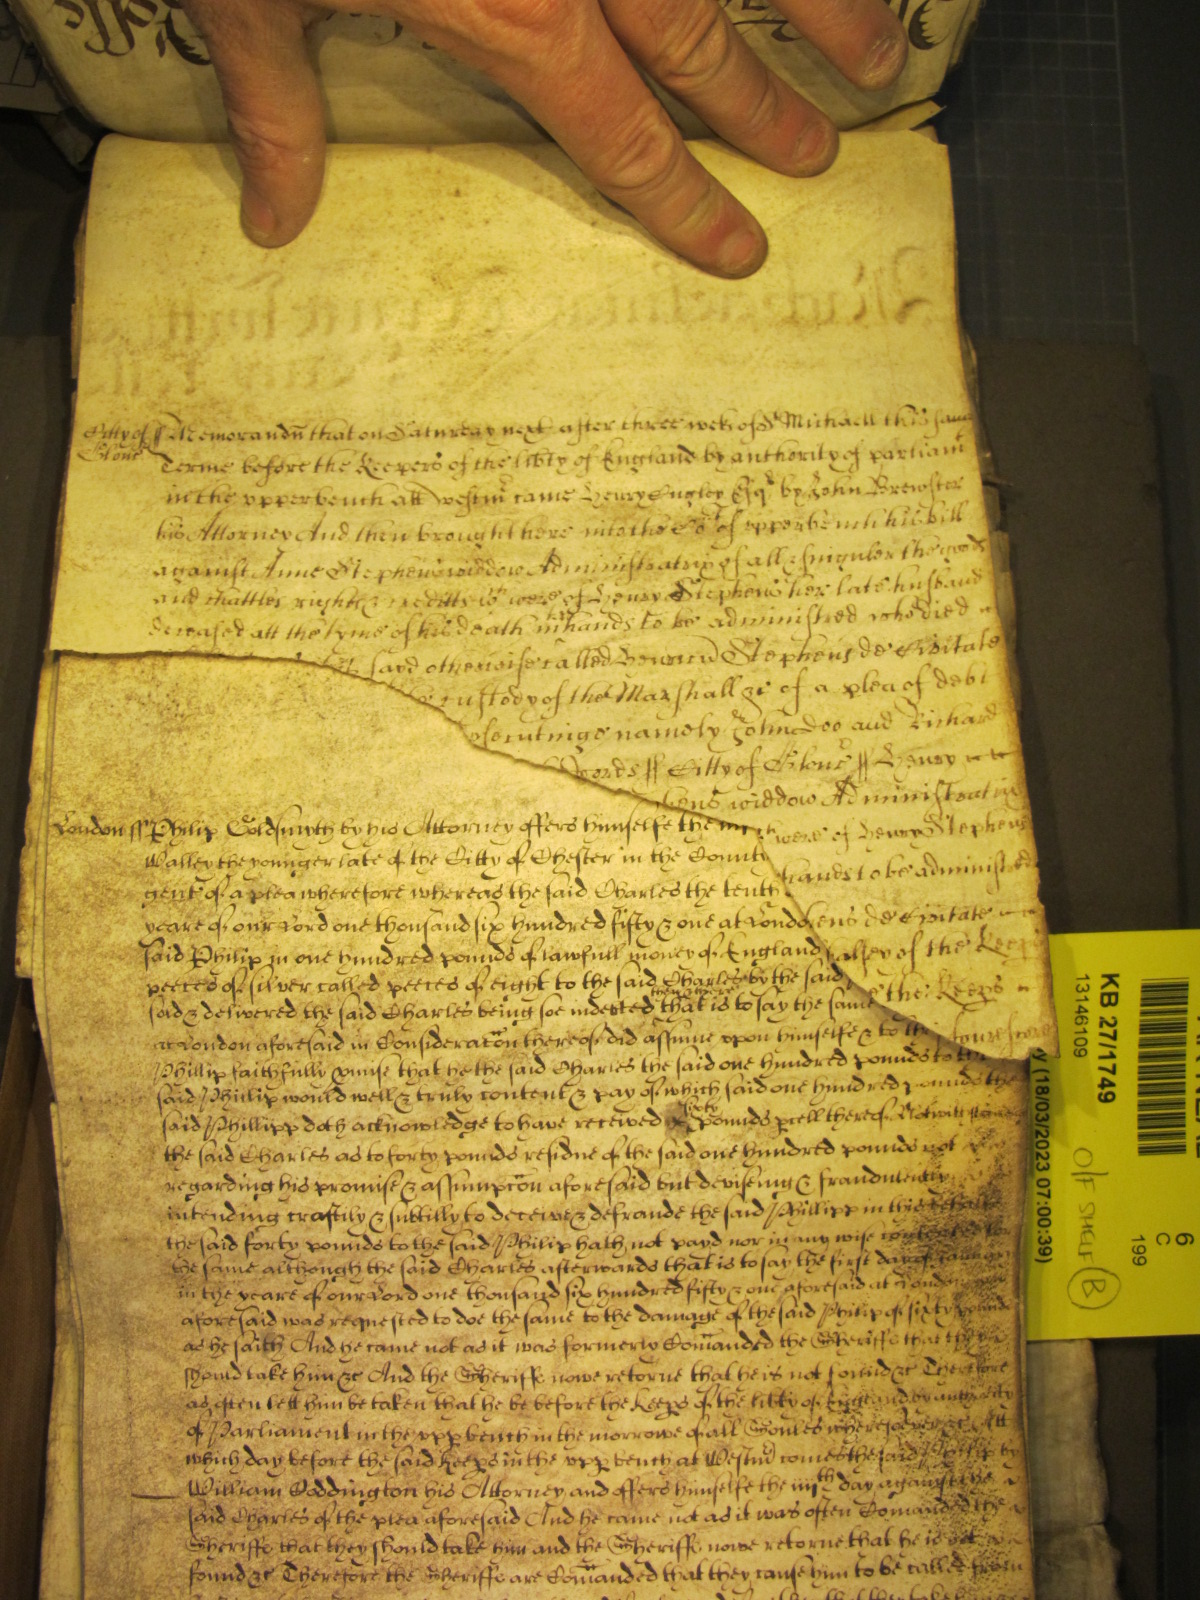 Citty of Glouc ss Memorandu that on Saturday next after three weeks of St Michaell this same
Terme before the Keepers of the libty of England by authority of parliamt
in the upperbench att Westmr came Henry Engley Esqr by John Brewster
his Attorney And then brought here into the Cort of upperbench his bill
against Anne Stephens widdow Administratrix of all & singuler the goods
and chattles rights & creditts wch were of Henry Stephens her late husband
deceased att the tyme of his death in her hands to be administred who died
said otherwise called Henricu Stephens de Civitate
custody of the Marshall &c of a plea of debt
namely John Doo and Richard
words ss Citty of Glouc ss Henry
widdow Administratrix
were of Henry Stephens
hands to be administred
de Civitate
of the Keeps
the Keeps
London ss Philip Goldsmyth by his Attorney offers himselfe the
Walley the younger late of the Citty of Chester in the County
gent of a plea wherefore whereas the said Charles the tenth
yeare of our Lord one thousand six hundred fifty & one at London
said Philip in one hundred pounds of lawfull money of England
peeces of silver called peeces of eight to the said Charles by the said
sold & delivered the said Charles being soe indebted then & there that is to say the same
at London aforesaid in Consideracon thereof did assume upon himselfe & to the
Phillip faithfully pmise that he the said Charles the said one hundred pounds to the
said Philip would well & truly content & pay of which said one hundred pounds the
said Phillipp doth acknowledge to have received sixty pounds pcell thereof Notwithstanding
the said Charles as to forty pounds residue of the said one hundred pounds not
regarding his promise & assumpcon aforesaid but deviseing & fraudulently
intending craftily & subtilly to deceive & defraude the said Phillipp in this behalfe
the said forty pounds to the said Philip hath not payd nor in any wise contented for
the same although the said Charles afterwards that is to say the first day of January
in the yeare of our Lord one thousand six hundred fifty & one aforesaid at London
aforesaid was requested to doe the same to the damage of the said Philip of sixty pounds
as he saith And he came not as it was formerly Comanded the Sheriffe that they
should take him &c And the Sheriffe nowe retorne that he is not found &c Therefore
as often lett him be taken that he be before the Keeps of the libty of England by authority
of Parliament in the upp bench in the morrowe of all Soules wheresoever &c Att
which day before the said Keeps in the upp bench at Westmr comes the said Philip by
William Coddington his Attorney and offers himselfe the iiijth day against the
said Charles of the plea aforesaid And he came not as it was often Comanded the
Sheriffe that they should take him and the Sheriffe nowe retorne that he is not
found &c Therefore the Sheriffe are Comanded that they cause him to be called from
KB 27/1749
13146109
(18/03/2023 07:00:39)
O/F SHELF B
6
C
199